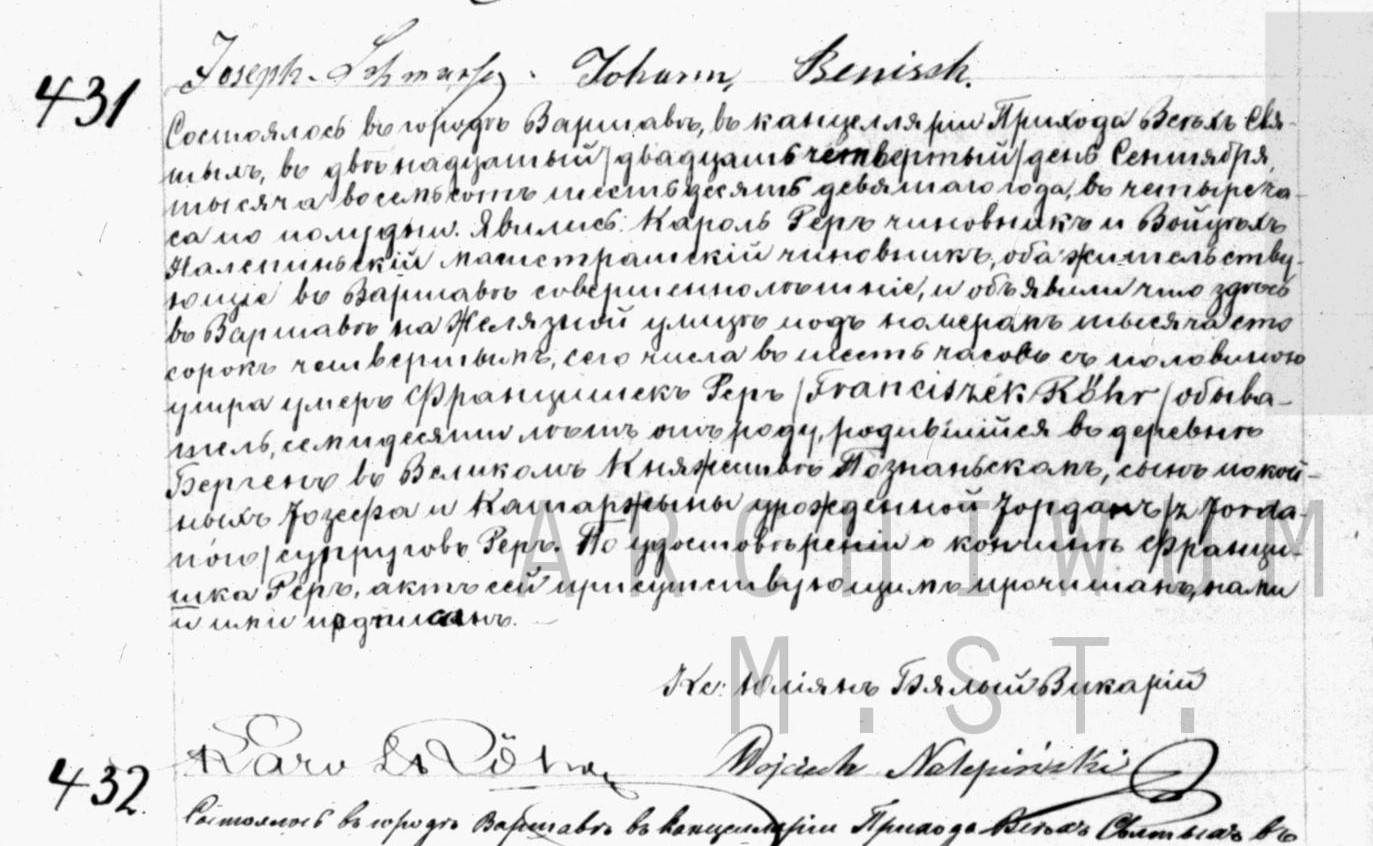 Joseph Schwartz. Johann Benisch.
431
Состоялось въ городѣ Варшавѣ, въ канцелляріи Прихода Всѣхъ Свя-
тыхъ, въ двѣнадцатый /двадцать четвертый/ день Сентября,
тысяча восемьсотъ шестьдесятъ девятаго года, въ четыре ча-
са по полудни. Явились: Кароль Реръ чиновникъ и Войцѣхъ
Налепиньскій магистратскій чиновникъ, оба жительству-
ющіе въ Варшавѣ совершеннолѣтніе, и объявили что здѣсь
въ Варшавѣ на Желязной улицѣ подъ номеромъ тысяча сто
сорокъ четвертымъ, сего числа въ шесть часовъ съ половиною
утра умеръ Францишекъ Реръ /Franciszek Röhr/ обыва-
тель, семидесяти лѣтъ отъ роду, родившійся въ деревнѣ
Бергенъ въ Великомъ Княжествѣ Познаньскомъ, сынъ покой-
ныхъ Іозефа и Катаржыны урожденной Іорданъ /z Jorda-
nów/ супруговъ Реръ. По удостовѣреніи о кончинѣ Франци-
шка Реръ, актъ сей присутствующимъ прочитанъ, нами
и ими подписанъ.
Кс: Юліянъ Бялый Викарій
Karol Röhr Wojciech Nalepiński
432.
Состоялось въ городѣ Варшавѣ въ канцелляріи Прихода Всѣхъ Святыхъ въ
ARCHIWUM
M.ST.